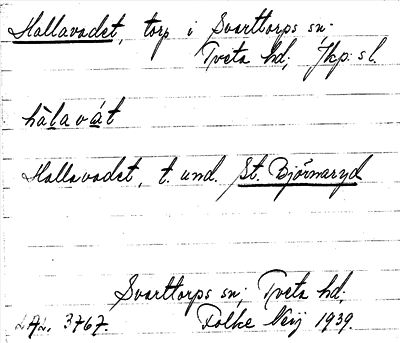 Hallavadet, torp i Svarttorps sn;
Tveta hd; Jkp. sl.
hàlavát
Hallavadet, t. und. St. Björnaryd
Svarttorps sn; Tveta hd;
L.A.L. 3767. Folke Neij 1939.